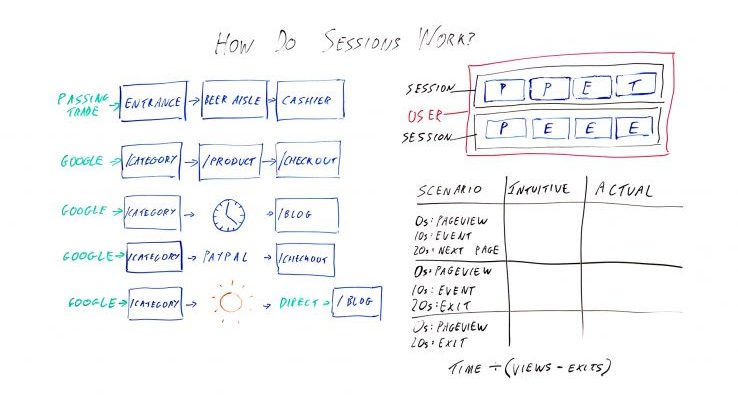 HOW DO SESSIONS WORK?
PASSING TRADE → ENTRANCE → BEER AISLE → CASHIER
GOOGLE → /CATEGORY → /PRODUCT → /CHECKOUT
GOOGLE → /CATEGORY → → /BLOG
GOOGLE → /CATEGORY → PAYPAL → /CHECKOUT
GOOGLE → /CATEGORY → → DIRECT → /BLOG
USER
SESSION P P E T
SESSION P E E E
SCENARIO INTUITIVE ACTUAL
0s: PAGEVIEW
10s: EVENT
20s: NEXT PAGE
0s: PAGEVIEW
10s: EVENT
20s: EXIT
0s: PAGEVIEW
20s: EXIT
TIME ÷ (VIEWS - EXITS)